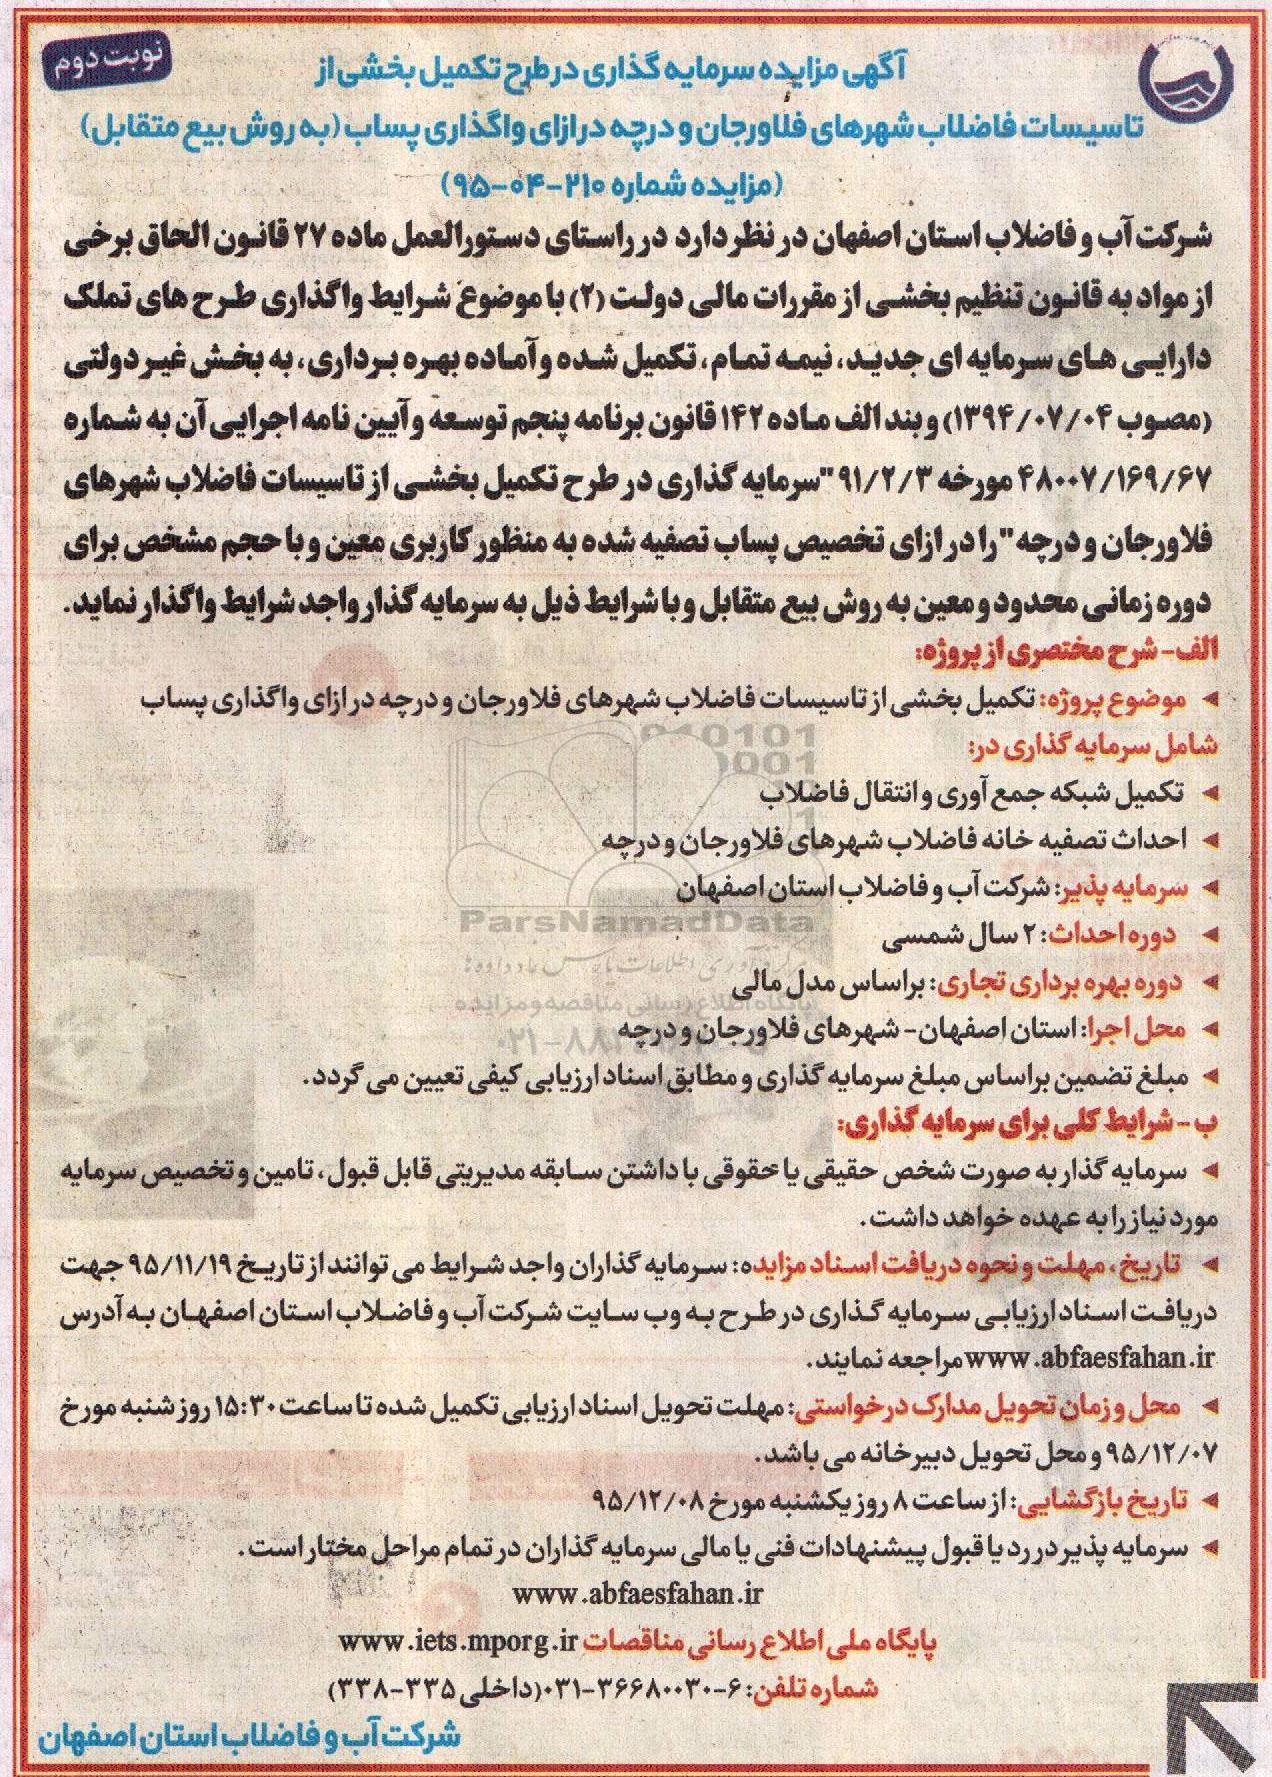 نوبت دوم
آگهی مزایده سرمایه گذاری در طرح تکمیل بخشی از
تاسیسات فاضلاب شهرهای فلاورجان و درچه در ازای واگذاری پساب (به روش بیع متقابل)
(مزایده شماره ۲۱۰-۰۴-۹۵)
شرکت آب و فاضلاب استان اصفهان در نظر دارد در راستای دستورالعمل ماده ۲۷ قانون الحاق برخی
از مواد به قانون تنظیم بخشی از مقررات مالی دولت (۲) با موضوع شرایط واگذاری طرح های تملک
دارایی های سرمایه ای جدید، نیمه تمام، تکمیل شده و آماده بهره برداری، به بخش غیر دولتی
(مصوب ۱۳۹۴/۰۷/۰۴) و بند الف ماده ۱۴۲ قانون برنامه پنجم توسعه و آیین نامه اجرایی آن به شماره
۴۸۰۰۷/۱۶۹/۶۷ مورخه ۹۱/۲/۳ "سرمایه گذاری در طرح تکمیل بخشی از تاسیسات فاضلاب شهرهای
فلاورجان و درچه" را در ازای تخصیص پساب تصفیه شده به منظور کاربری معین و با حجم مشخص برای
دوره زمانی محدود و معین به روش بیع متقابل و با شرایط ذیل به سرمایه گذار واجد شرایط واگذار نماید.
الف- شرح مختصری از پروژه:
موضوع پروژه: تکمیل بخشی از تاسیسات فاضلاب شهرهای فلاورجان و درچه در ازای واگذاری پساب
شامل سرمایه گذاری در:
تکمیل شبکه جمع آوری و انتقال فاضلاب
احداث تصفیه خانه فاضلاب شهرهای فلاورجان و درچه
سرمایه پذیر: شرکت آب و فاضلاب استان اصفهان
دوره احداث: ۲ سال شمسی
دوره بهره برداری تجاری: براساس مدل مالی
محل اجرا: استان اصفهان- شهرهای فلاورجان و درچه
مبلغ تضمین براساس مبلغ سرمایه گذاری و مطابق اسناد ارزیابی کیفی تعیین می گردد.
ب- شرایط کلی برای سرمایه گذاری:
سرمایه گذار به صورت شخص حقیقی یا حقوقی با داشتن سابقه مدیریتی قابل قبول، تامین و تخصیص سرمایه
مورد نیاز را به عهده خواهد داشت.
تاریخ، مهلت و نحوه دریافت اسناد مزایده: سرمایه گذاران واجد شرایط می توانند از تاریخ ۹۵/۱۱/۱۹ جهت
دریافت اسناد ارزیابی سرمایه گذاری در طرح به وب سایت شرکت آب و فاضلاب استان اصفهان به آدرس
www.abfaesfahan.ir مراجعه نمایند.
محل و زمان تحویل مدارک درخواستی: مهلت تحویل اسناد ارزیابی تکمیل شده تا ساعت ۱۵:۳۰ روز شنبه مورخ
۹۵/۱۲/۰۷ و محل تحویل دبیرخانه می باشد.
تاریخ بازگشایی: از ساعت ۸ روز یکشنبه مورخ ۹۵/۱۲/۰۸
سرمایه پذیر در رد یا قبول پیشنهادات فنی یا مالی سرمایه گذاران در تمام مراحل مختار است.
www.abfaesfahan.ir
پایگاه ملی اطلاع رسانی مناقصات www.iets.mporg.ir
شماره تلفن: ۶-۰۳۱-۳۶۶۸۰۰۳۰ (داخلی ۳۳۵-۳۳۸)
شرکت آب و فاضلاب استان اصفهان
ParsNamadData
پایگاه اطلاع رسانی مناقصه و مزایده